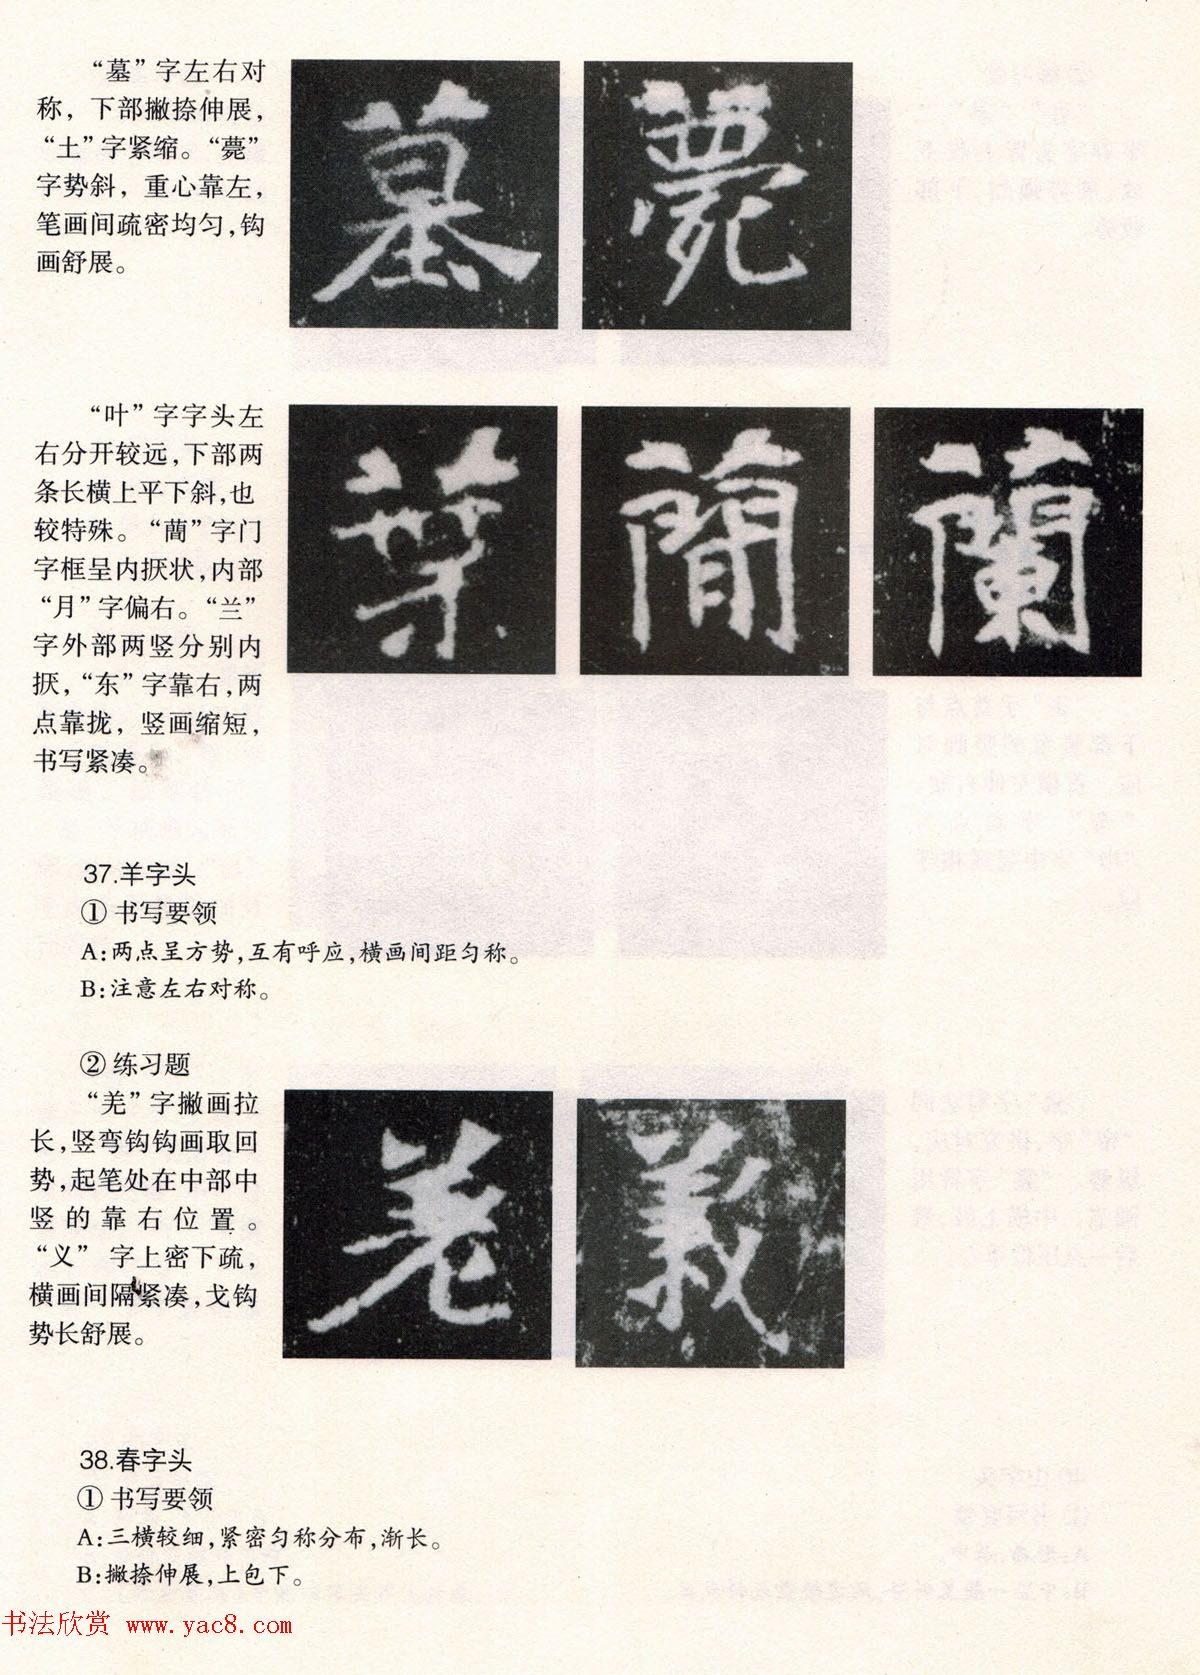 “墓”字左右对
称，下部撇捺伸展，
“土”字紧缩。“薨”
字势斜，重心靠左，
笔画间疏密均匀，钩
画舒展。
墓
薨
“叶”字字头左
右分开较远，下部两
条长横上平下斜，也
较特殊。“蕳”字门
字框呈内抧状，内部
“月”字偏右。“兰”
字外部两竖分别内
抧，“东”字靠右，两
点靠拢，竖画缩短，
书写紧凑。
葉
蕳
蘭
37.羊字头
① 书写要领
A：两点呈方势，互有呼应，横画间距匀称。
B：注意左右对称。
② 练习题
“羌”字撇画拉
长，竖弯钩钩画取回
势，起笔处在中部中
竖的靠右位置。
“义” 字上密下疏，
横画间隔紧凑，戈钩
势长舒展。
羌
義
38.春字头
① 书写要领
A：三横较细，紧密匀称分布，渐长。
B：撇捺伸展，上包下。
书法欣赏 www.yac8.com